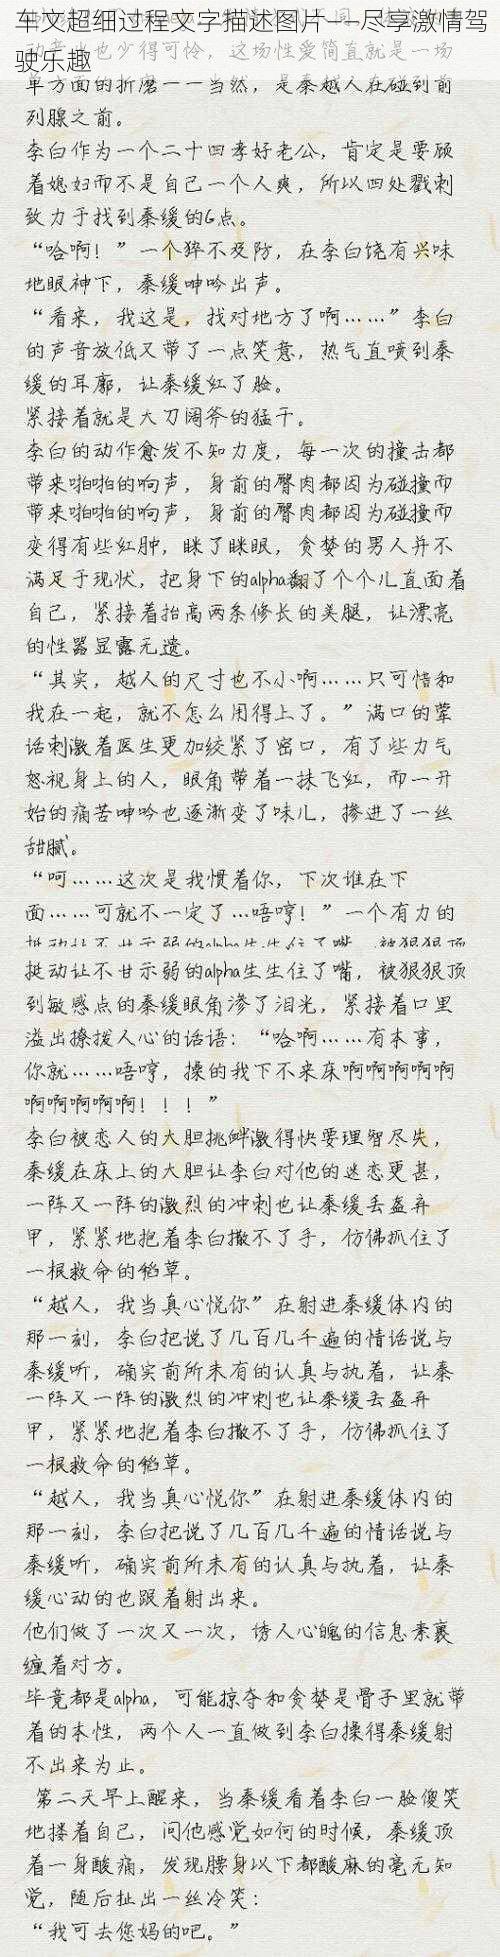 车文超细过程文字描述图片——尽享激情驾
驶乐趣
单方面的折磨——当然，是秦越人在碰到前
列腺之前。
李白作为一个二十四孝好老公，肯定是要顾
着媳妇而不是自己一个人爽，所以四处戳刺
致力于找到秦缓的G点。
“哈啊！”一个猝不及防，在李白饶有兴味
地眼神下，秦缓呻吟出声。
“看来，我这是，找对地方了啊……”李白
的声音放低又带了一点笑意，热气直喷到秦
缓的耳廓，让秦缓红了脸。
紧接着就是大刀阔斧的猛干。
李白的动作愈发不知力度，每一次的撞击都
带来啪啪的响声，身前的臀肉都因为碰撞而
带来啪啪的响声，身前的臀肉都因为碰撞而
变得有些红肿，眯了眯眼，贪婪的男人并不
满足于现状，把身下的alpha翻了个个儿直面着
自己，紧接着抬高两条修长的美腿，让漂亮
的性器显露无遗。
“其实，越人的尺寸也不小啊……只可惜和
我在一起，就不怎么用得上了。”满口的荤
话刺激着医生更加绞紧了密口，有了些力气
怒视身上的人，眼角带着一抹飞红，而一开
始的痛苦呻吟也逐渐变了味儿，掺进了一丝
甜腻。
“呵……这次是我惯着你，下次谁在下
面……可就不一定了…唔哼！”一个有力的
挺动让不甘示弱的alpha生生住了嘴，被狠狠顶
到敏感点的秦缓眼角渗了泪光，紧接着口里
溢出撩拨人心的话语：“哈啊……有本事，
你就……唔哼，操的我下不来床啊啊啊啊啊
啊啊啊啊啊！！！”
李白被恋人的大胆挑衅激得快要理智尽失，
秦缓在床上的大胆让李白对他的迷恋更甚，
一阵又一阵的激烈的冲刺也让秦缓丢盔弃
甲，紧紧地抱着李白撒不了手，仿佛抓住了
一根救命的稻草。
“越人，我当真心悦你”在射进秦缓体内的
那一刻，李白把说了几百几千遍的情话说与
秦缓听，确实前所未有的认真与执着，让秦
一阵又一阵的激烈的冲刺也让秦缓丢盔弃
甲，紧紧地抱着李白撒不了手，仿佛抓住了
一根救命的稻草。
“越人，我当真心悦你”在射进秦缓体内的
那一刻，李白把说了几百几千遍的情话说与
秦缓听，确实前所未有的认真与执着，让秦
缓心动的也跟着射出来。
他们做了一次又一次，诱人心魄的信息素裹
缠着对方。
毕竟都是alpha，可能掠夺和贪婪是骨子里就带
着的本性，两个人一直做到李白操得秦缓射
不出来为止。
第二天早上醒来，当秦缓看着李白一脸傻笑
地搂着自己，问他感觉如何的时候，秦缓顶
着一身酸痛，发现腰身以下都酸麻的毫无知
觉，随后扯出一丝冷笑：
“我可去您妈的吧。”